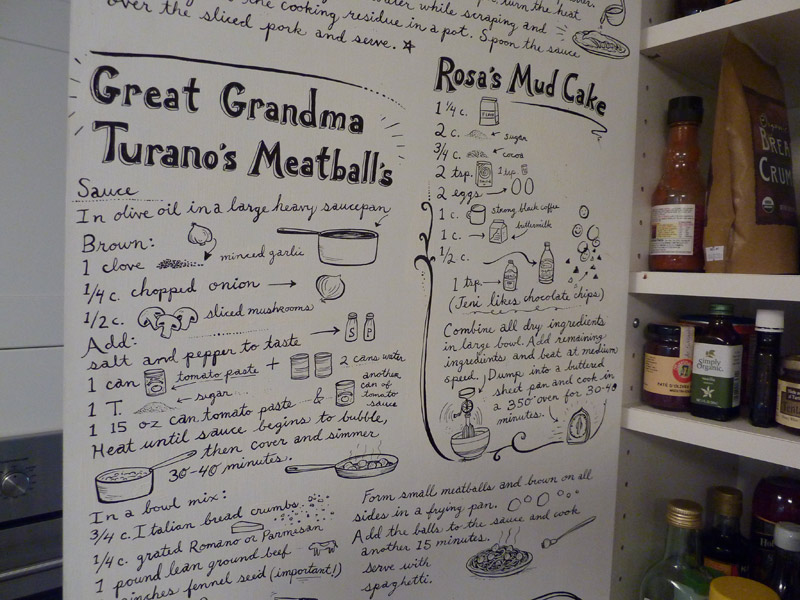 turn the heat
while scraping and
the cooking residue in a pot. Spoon the sauce
over the sliced pork and serve.
Great Grandma
Turano's Meatball's
Sauce
In olive oil in a large heavy saucepan
Brown:
1 clove minced garlic
1/4 c. chopped onion
1/2 c. sliced mushrooms
Add:
salt and pepper to taste S P
1 can tomato paste + 2 cans water
1 T. sugar & another can of tomato sauce
1 15 oz can tomato paste
Heat until sauce begins to bubble,
then cover and simmer
30-40 minutes.
In a bowl mix:
3/4 c. Italian bread crumbs
1/4 c. grated Romano or Parmesan
1 pound lean ground beef
pinches fennel seed (important!)
Form small meatballs and brown on all
sides in a frying pan.
Add the balls to the sauce and cook
another 15 minutes.
serve with
spaghetti.
Rosa's Mud Cake
1 1/4 c.
2 c. sugar
3/4 c. cocoa
2 tsp. 1 tsp.
2 eggs
1 c. strong black coffee
1 c. buttermilk
1/2 c.
1 tsp
(Jeni likes chocolate chips)
Combine all dry ingredients
in large bowl. Add remaining
ingredients and beat at medium
speed. Dump into a buttered
sheet pan and cook in
a 350° oven for 30-40
minutes.
BREA
CRUM
Simply
Organic